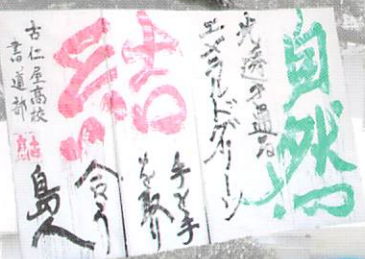 自然
エメラルドグリーン
結
手と手
を取り
合う
島人
古仁屋高校
書道部